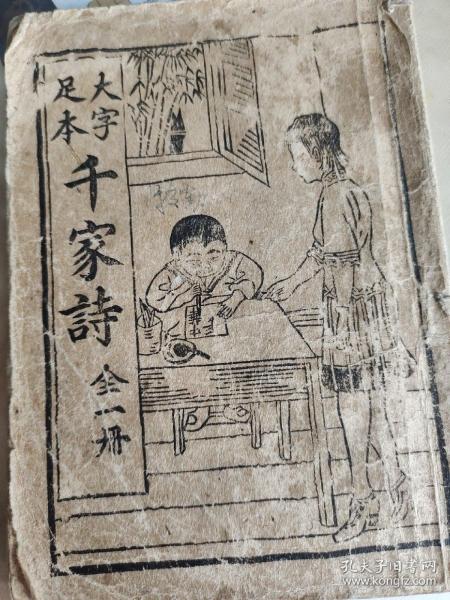 大字
足本
千家詩
全一冊
孔夫子旧书网
www.kongfz.com